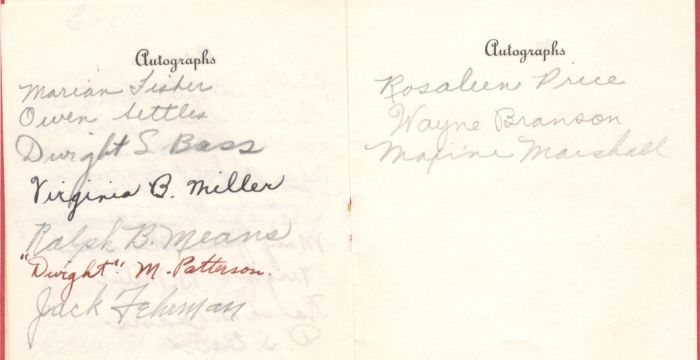 Autographs
Marian Fisher
Owen Settles
Dwight S Bass
Virginia B. Miller
Ralph B. Means
"Dwight" M. Patterson.
Jack Fehrman
Autographs
Rosaleen Price
Wayne Branson
Maxine Marshall